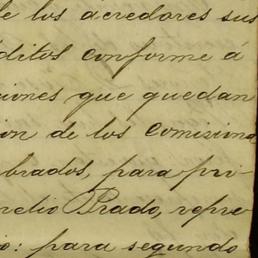 de los acredores sus
éditos conforme á
ciones que quedan
ion de los Comisiona
brados, para pro-
nelio Prado, repre
io: para segundo